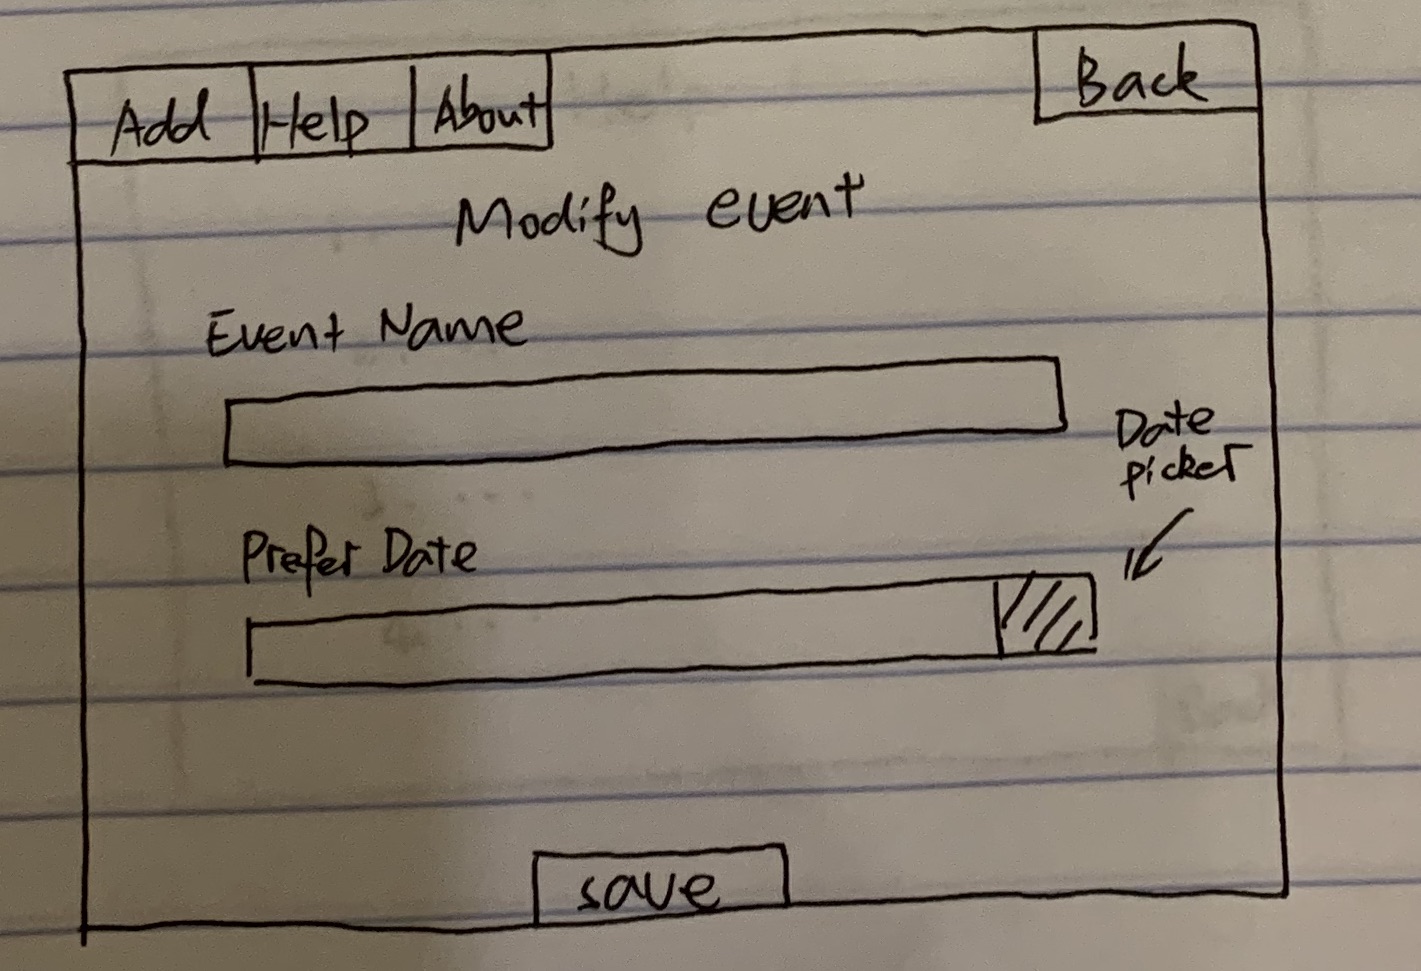 Add Help About Back
Modify event
Event Name
Date
picker
Prefer Date
save